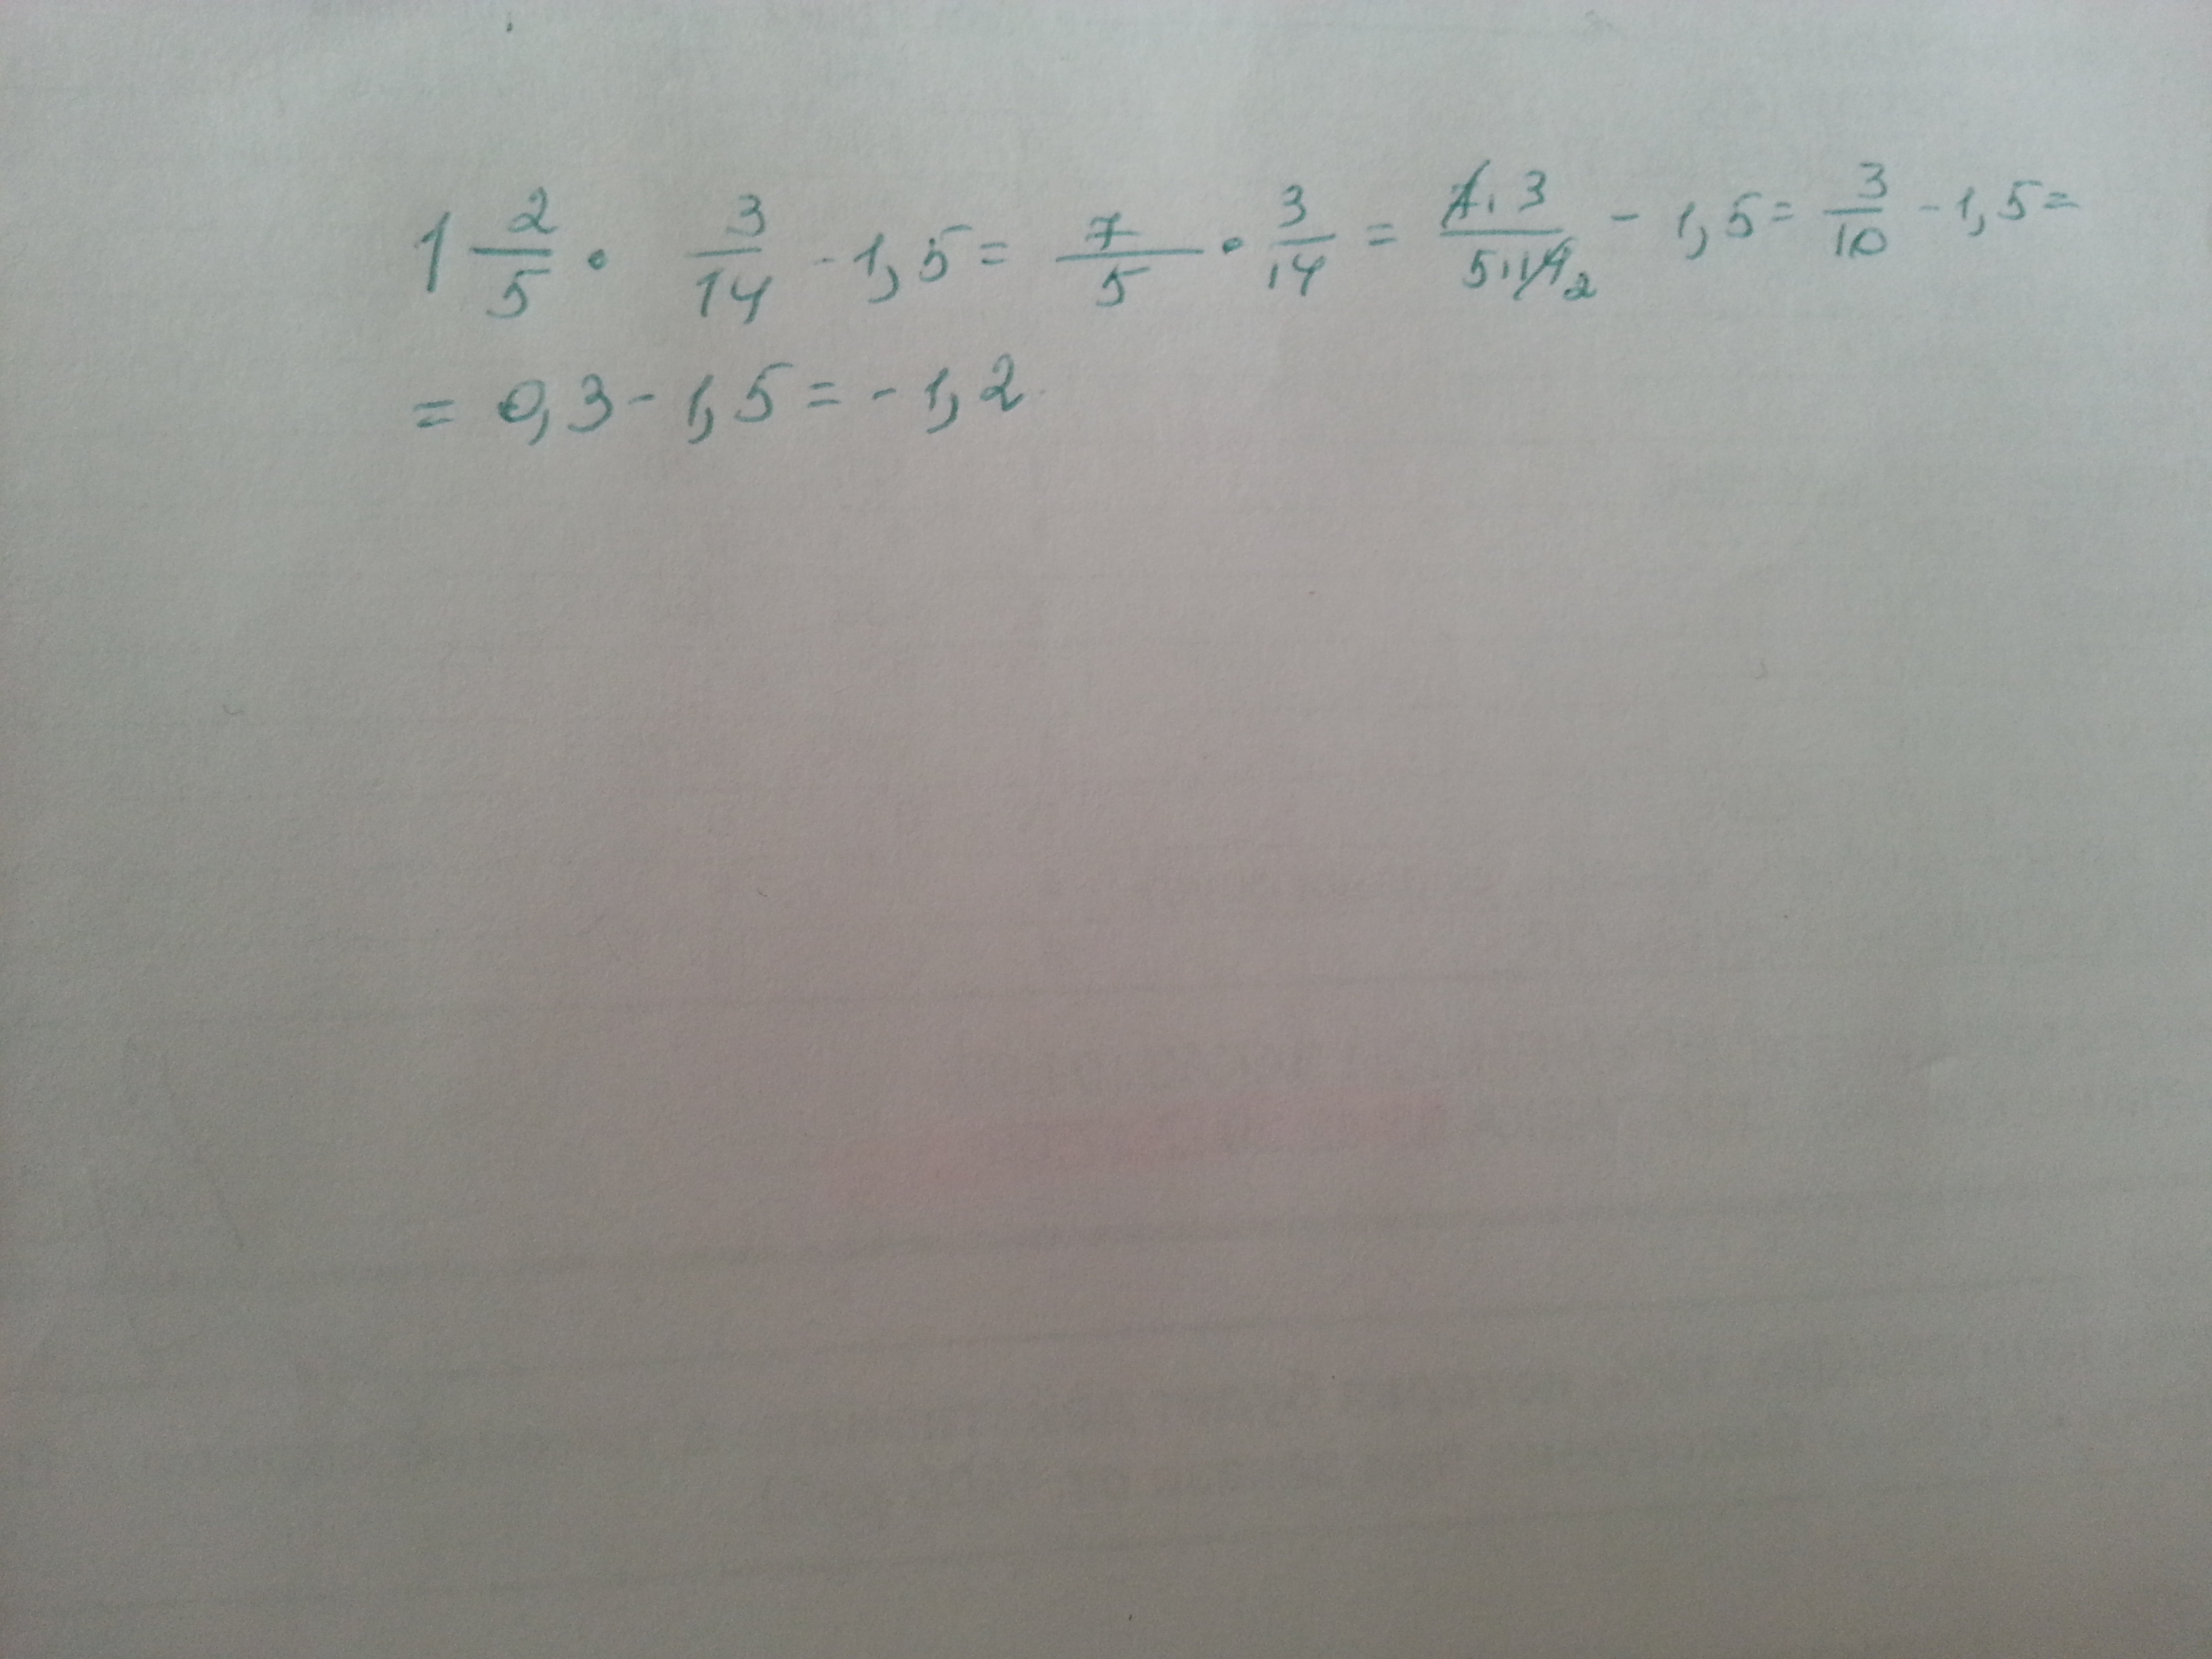 1 2/5 · 3/14 - 1,5 = 7/5 · 3/14 = 7·3/5·14 2 - 1,5 = 3/10 - 1,5 =
= 0,3 - 1,5 = - 1,2